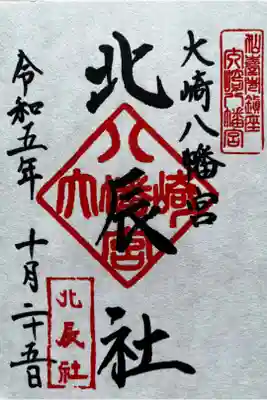 仙臺総鎮座
大崎八幡宮
大崎八幡宮
北辰社
八幡宮
大崎
令和五年 十月二十五日
北辰社